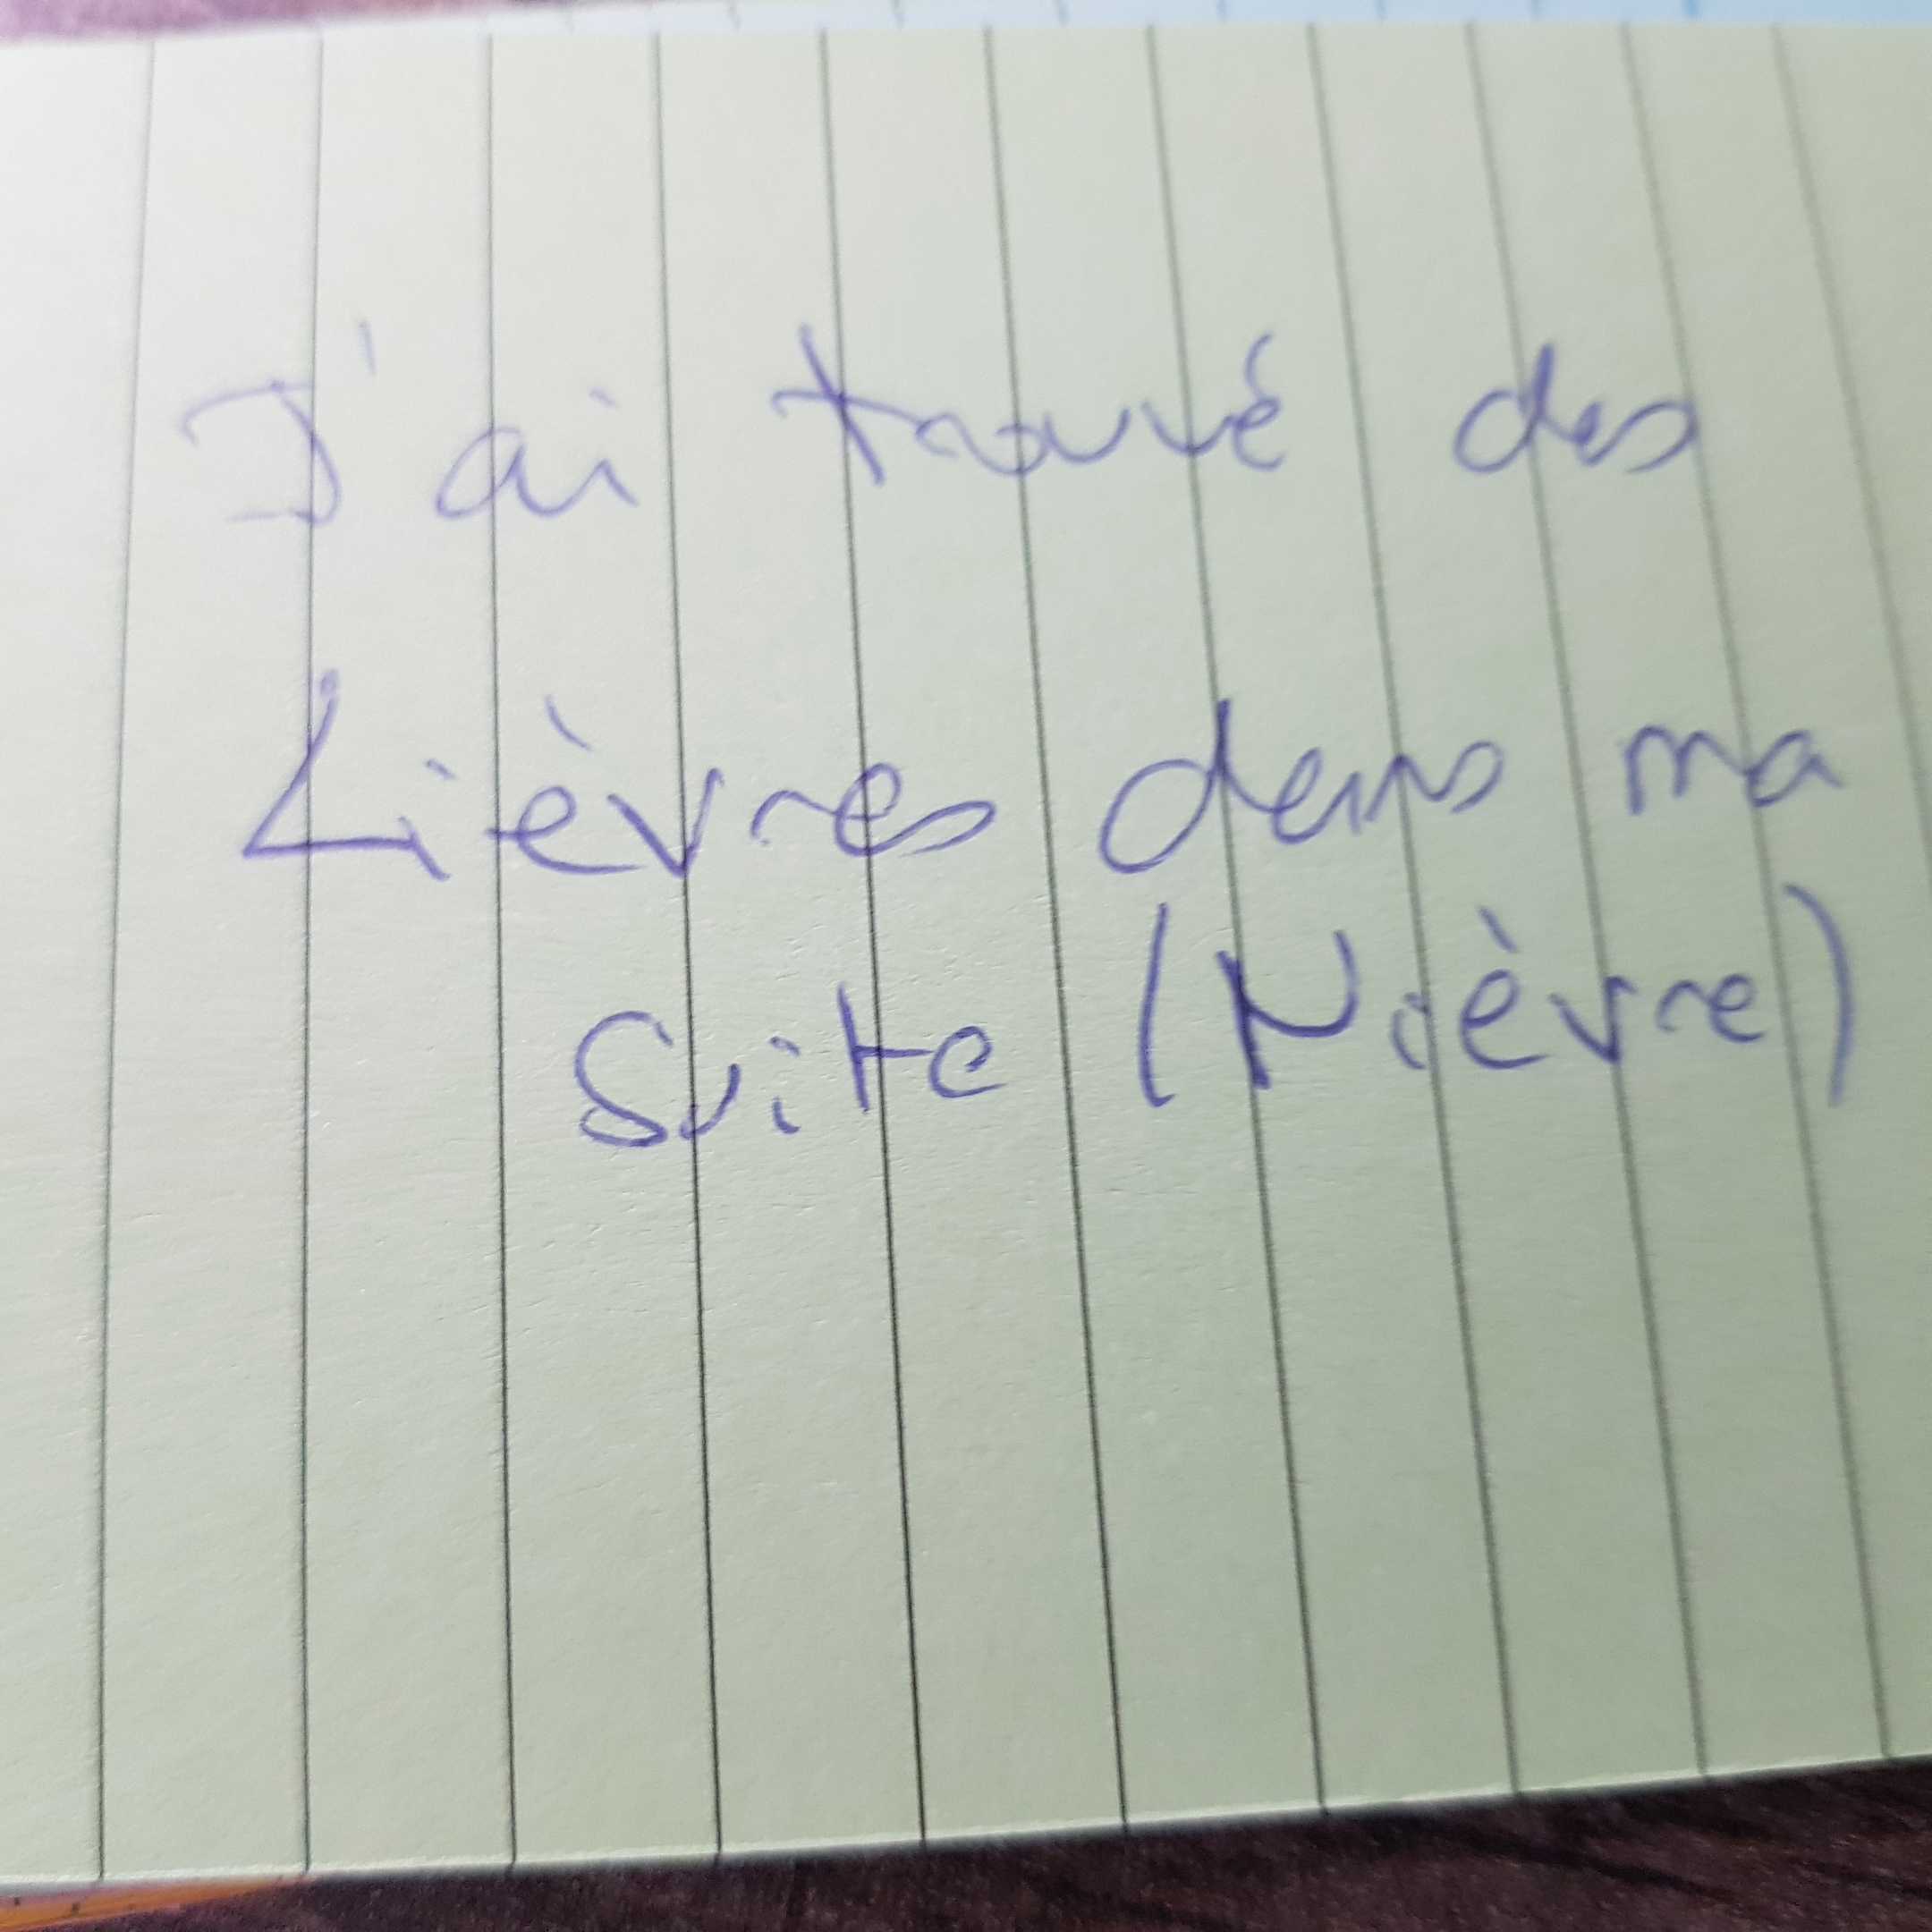 J'ai trouvé des
Lièvres dans ma
Suite (Nièvre)